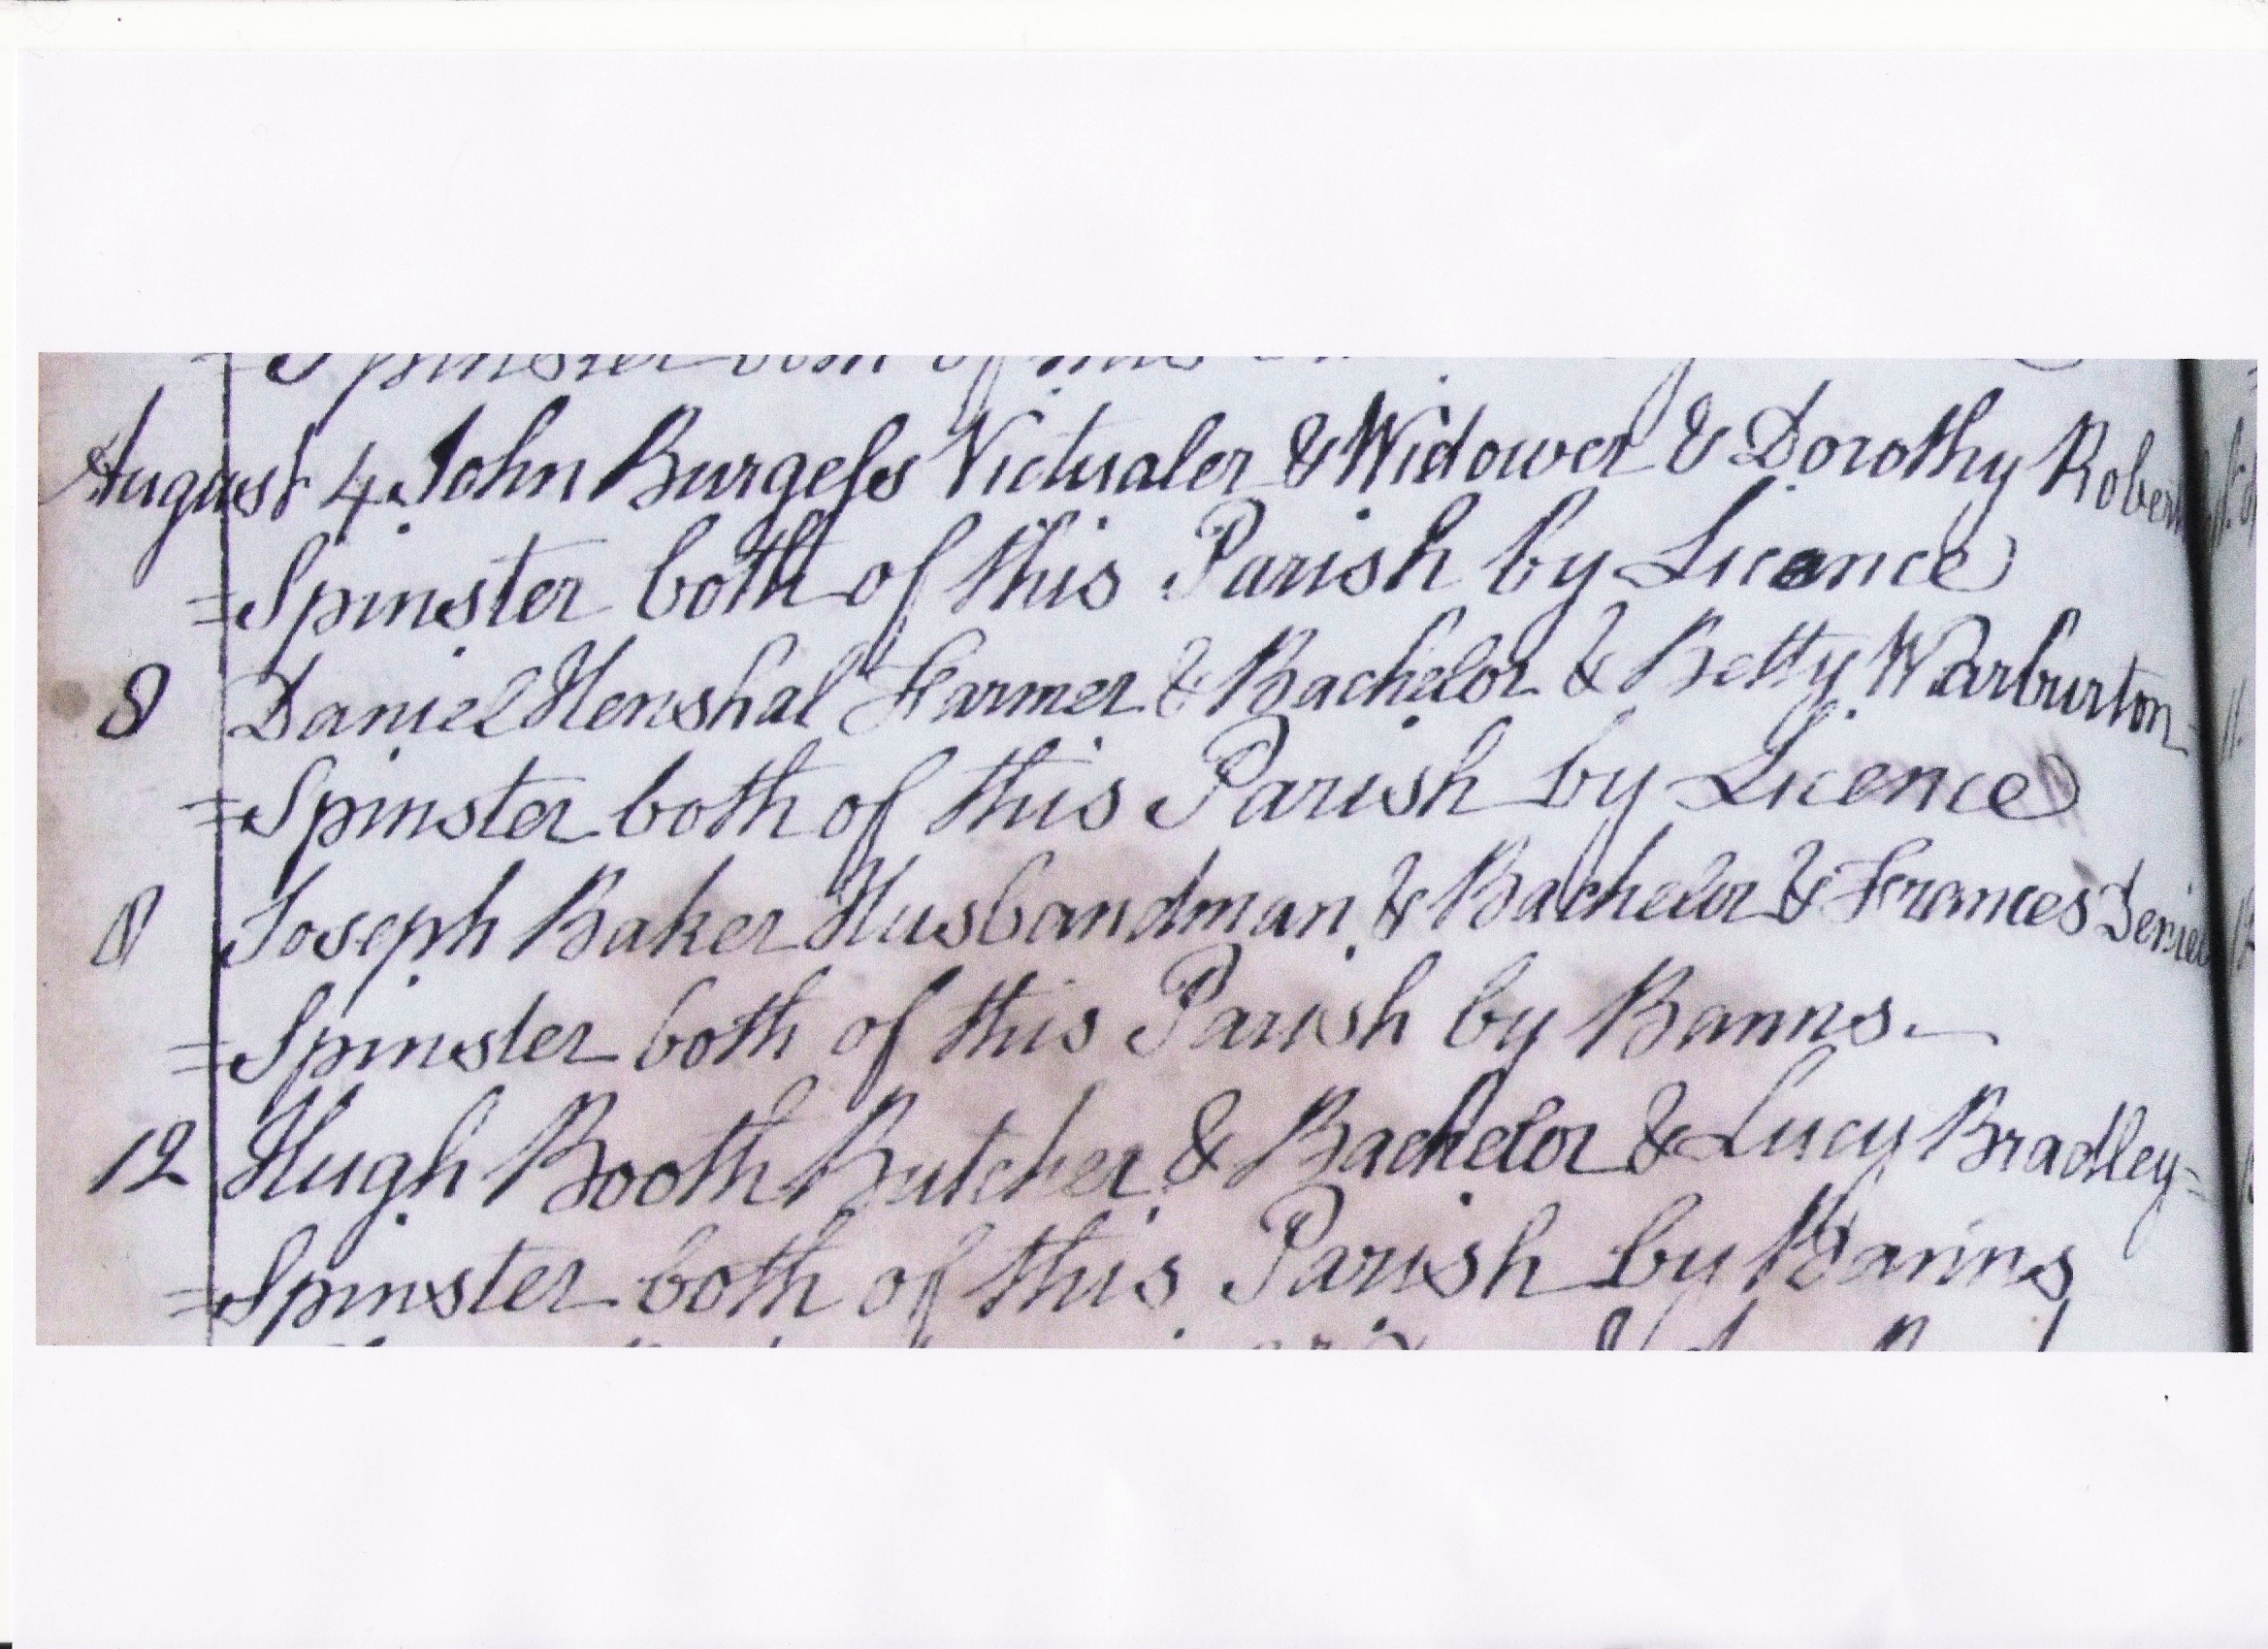 Spinster both of this
August 4 John Burgess Victualer & Widower & Dorothy
=Spinster both of this Parish by Licance
8 Daniel Henshal Farmer & Bachelor & Betty Warburton
=Spinster both of this Parish by Licence
8 Joseph Baker Husbandman & Bachelor & Frances
=Spinster both of this Parish by Banns.
12 Hugh Booth Butcher & Bachelor & Lucy Bradley=
=Spinster both of this Parish by Banns